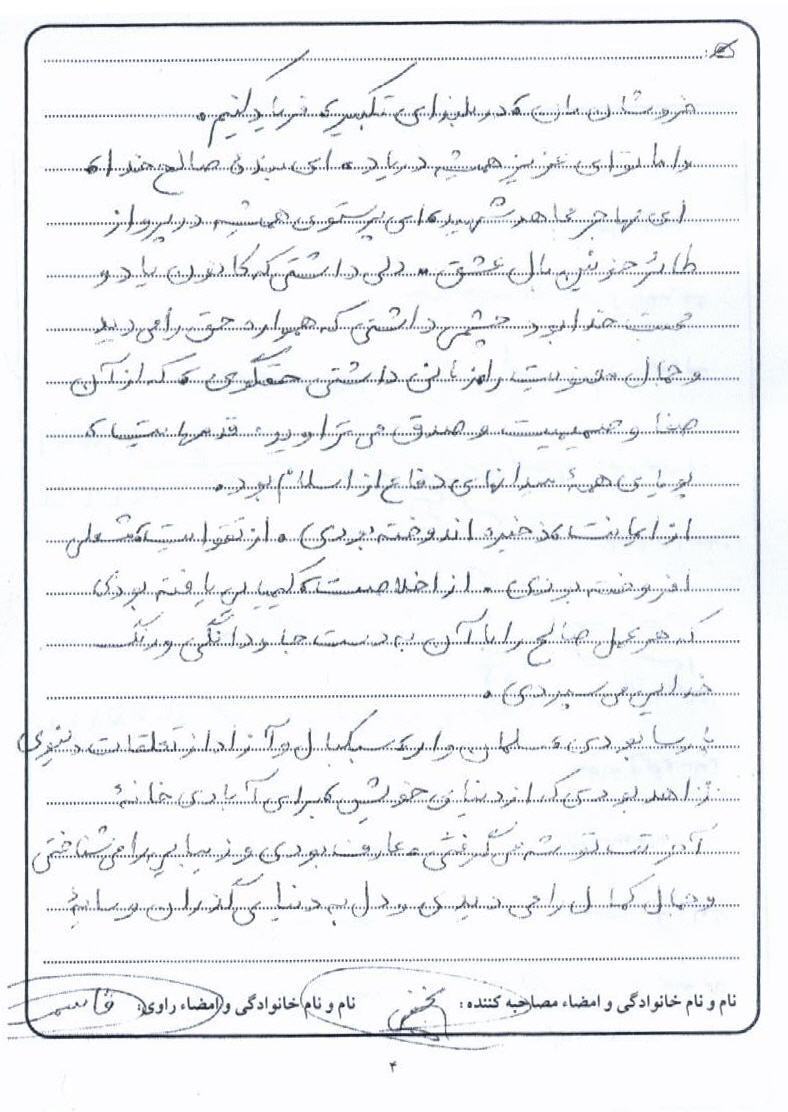 خروشان مان، در بلندای تکبیر، فریاد کنیم.
و اما تو ای عزیز همیشه در یاد، ای بنده صالح خدا،
ای مهاجر مجاهد شهید، ای پرستوی همیشه در پرواز
طائر خونین بال عشق. دلی داشتی که کانون یاد و
محبت خدا بود چشمی داشتی که همواره حق را می دید
و جمال معنویت را، زبانی داشتی حقگوی، که از آن
صفا و صمیمیت و صدق می تراوید، قدمهایت،
پویای همهٔ میدانهای دفاع از اسلام بود.
از ایمانت، ذخیره اندوخته بودی، از تقوایت، مشعلی
افروخته بودی، از اخلاصت، کیمیایی یافته بودی
که هر عمل صالح را با آن به دست جاودانگی و رنگ
خدایی می سپردی.
پارسا بودی، سلمان وار، سبکبال و آزاد از تعلقات دنیوی
زاهد بودی که از دنیای خویش، برای آبادی خانهٔ
آخرتت توشه می گرفتی، عارف بودی و زیبایی را می شناختی
و جمال کمال را می دیدی و دل به دنیای گذران و سایهٔ
نام و نام خانوادگی و امضاء مصاحبه کننده: نام و نام خانوادگی و امضاء راوی: قاسم
۴